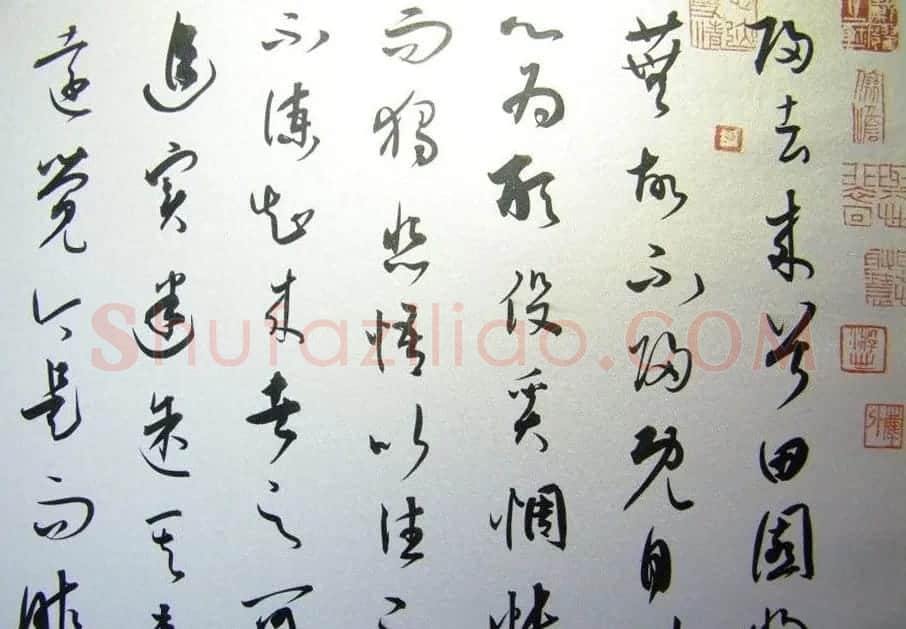 歸去来兮田園将
蕪胡不歸既自
心为形役奚惆悵
而獨悲悟以往之
不諫知来者之可
追實迷途其未
遠覺今是而昨
Shufaziliao.COM